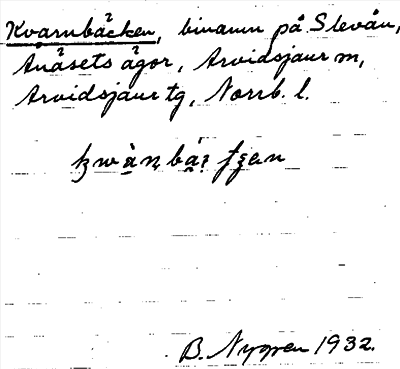 Kvarnbäcken, binamn på Slevån,
Anåsets ägor, Arvidsjaur m,
Arvidsjaur tg, Norrb. l.
B. Nygren 1932.